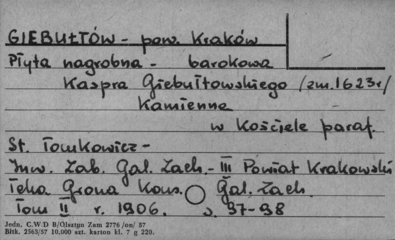 GIEBUŁTÓW - pow. Kraków
Płyta nagrobna - barokowa
Kaspra Giebułtowskiego /zm. 1623r/
Kamienna
w kościele paraf.
St. Tomkowicz -
Inw. Zab. Gal. Zach. - III Powiat Krakowski
Teka Grona Kons. Gal. Zach.
Tom II r. 1906. s. 97-98
Jedn. C.W.D B/Olsztyn Zam 2776/en/ 57
Bltk. 2563/57 10,000 szt. karton kl. 7 g 220.